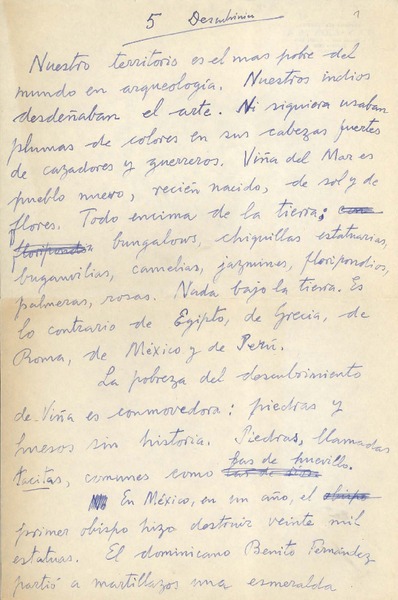 5 Descubrim 1
Nuestro territorio es el mas pobre del
mundo en arqueología. Nuestros indios
desdeñaban el arte. Ni siquiera usaban
plumas de colores en sus cabezas fuertes
de cazadores y guerreros. Viña del Mar es
pueblo nuevo, recién nacido, de sol y de
flores. Todo encima de la tierra; con
floripondios bungalows, chiquillas estatuarias,
buganvilias, camelias, jazmines, floripondios,
palmeras, rosas. Nada bajo la tierra. Es
lo contrario de Egipto, de Grecia, de
Roma, de México y de Perú.
La pobreza del descubrimiento
de Viña es conmovedora: piedras y
huesos sin historia. Piedras, llamadas
tacitas, comunes como las de huevillo.
En México, en un año, el obispo
primer obispo hizo destruir veinte mil
estatuas. El dominicano Benito Fernández
partió a martillazos una esmeralda